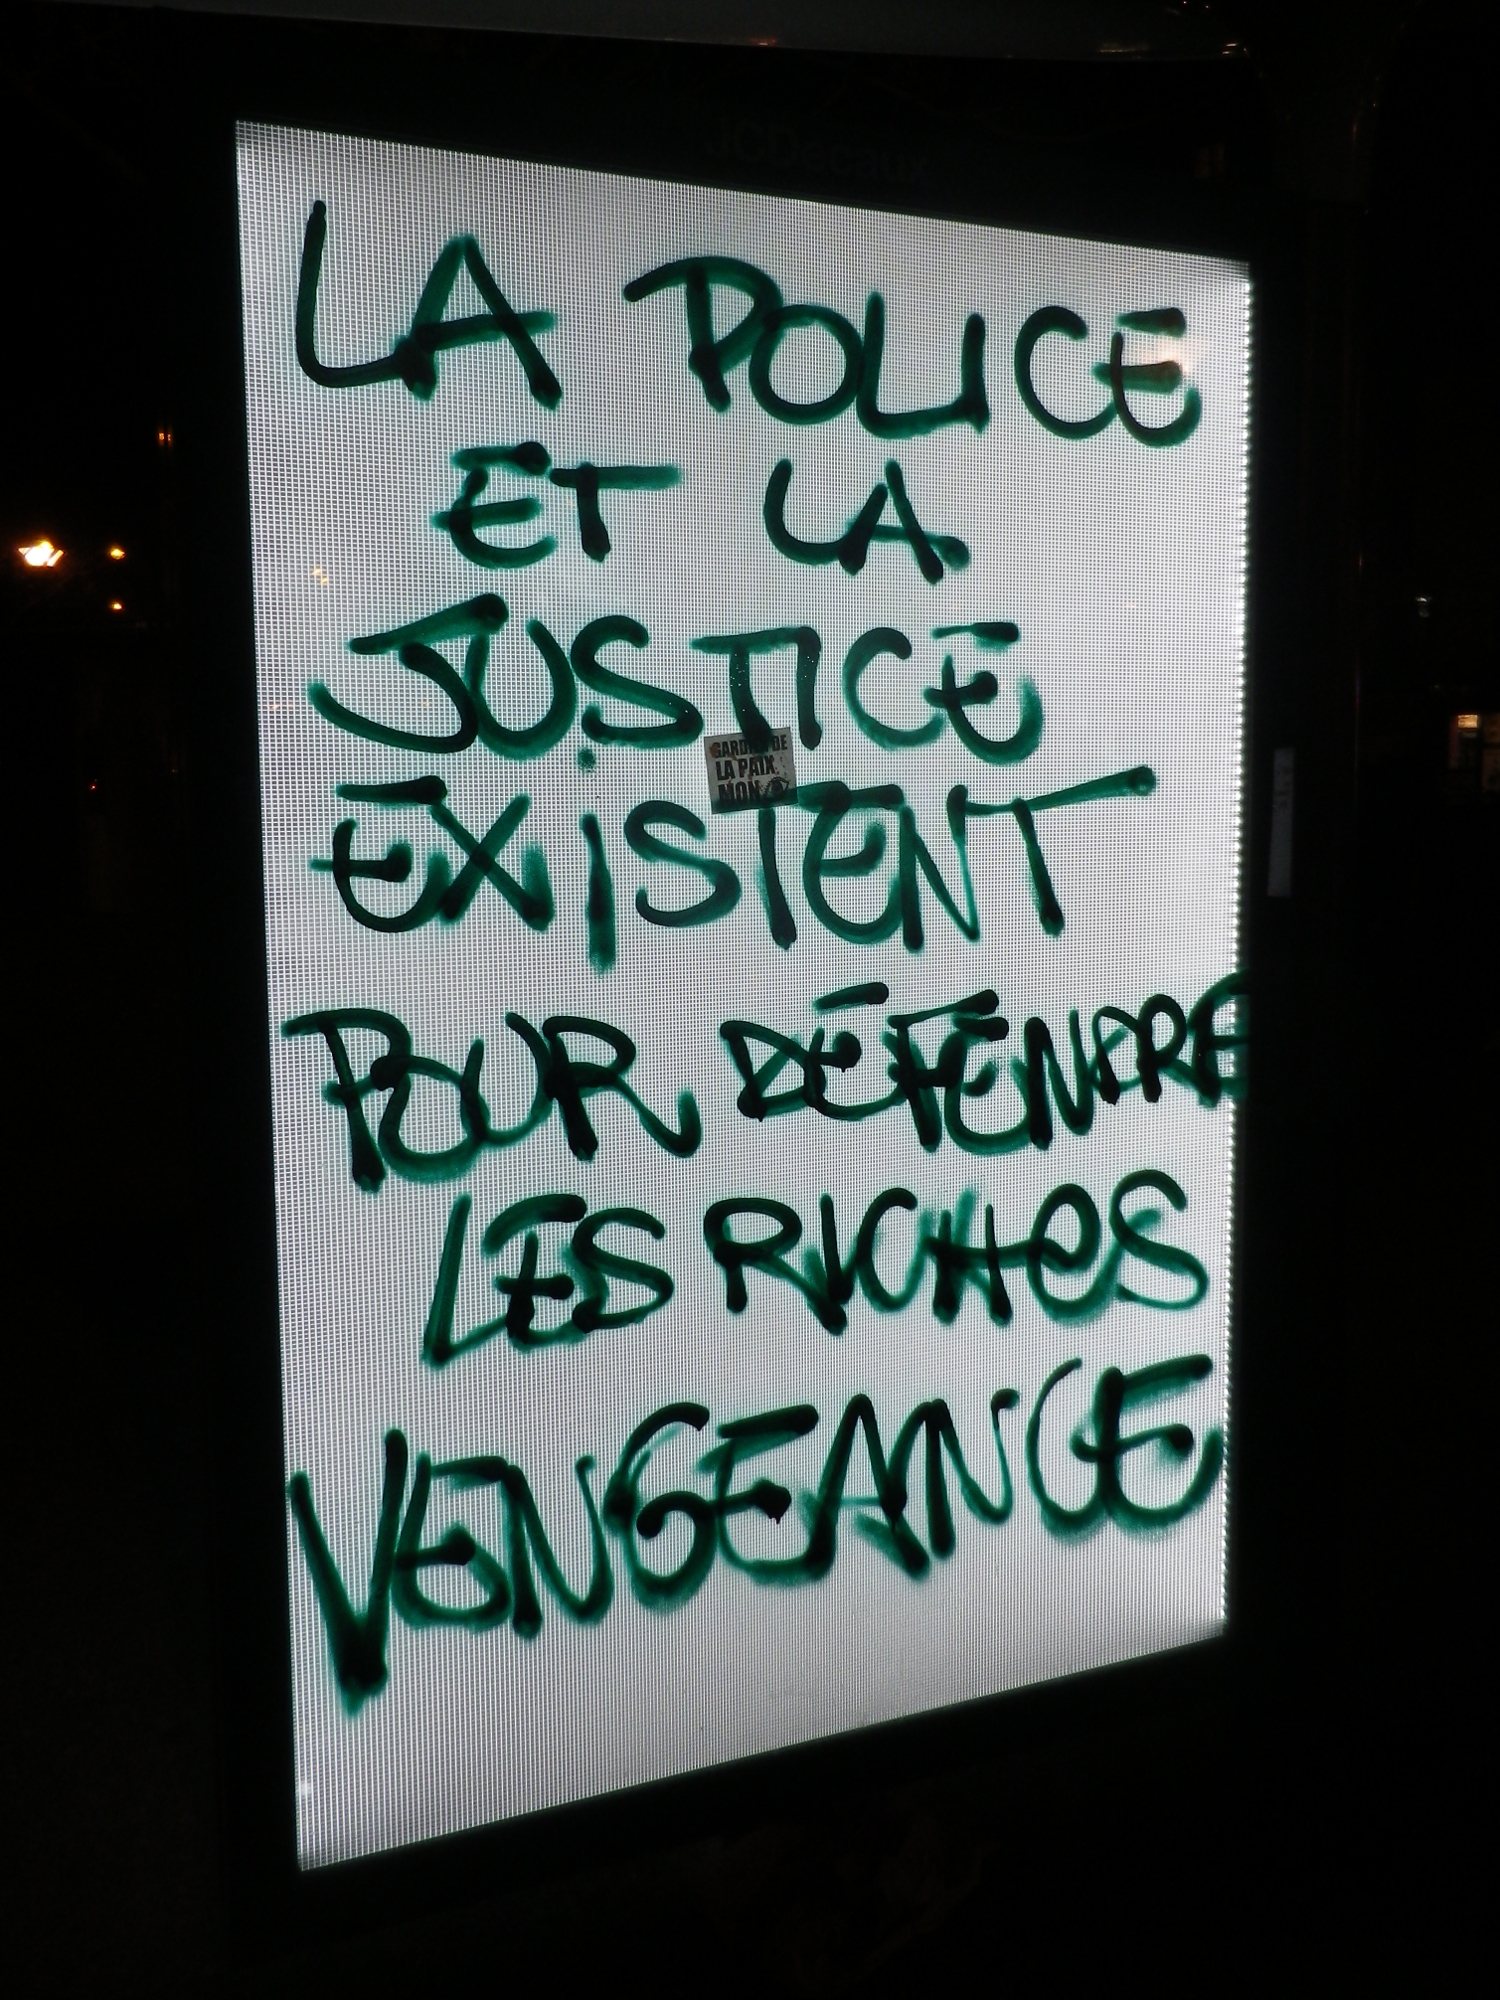 JCDecaux
LA POLICE
ET LA
JUSTICE
GARDIEN DE
LA PAIX
MON
EXISTENT
POUR DÉFENDRE
LES RICHES
VENGEANCE